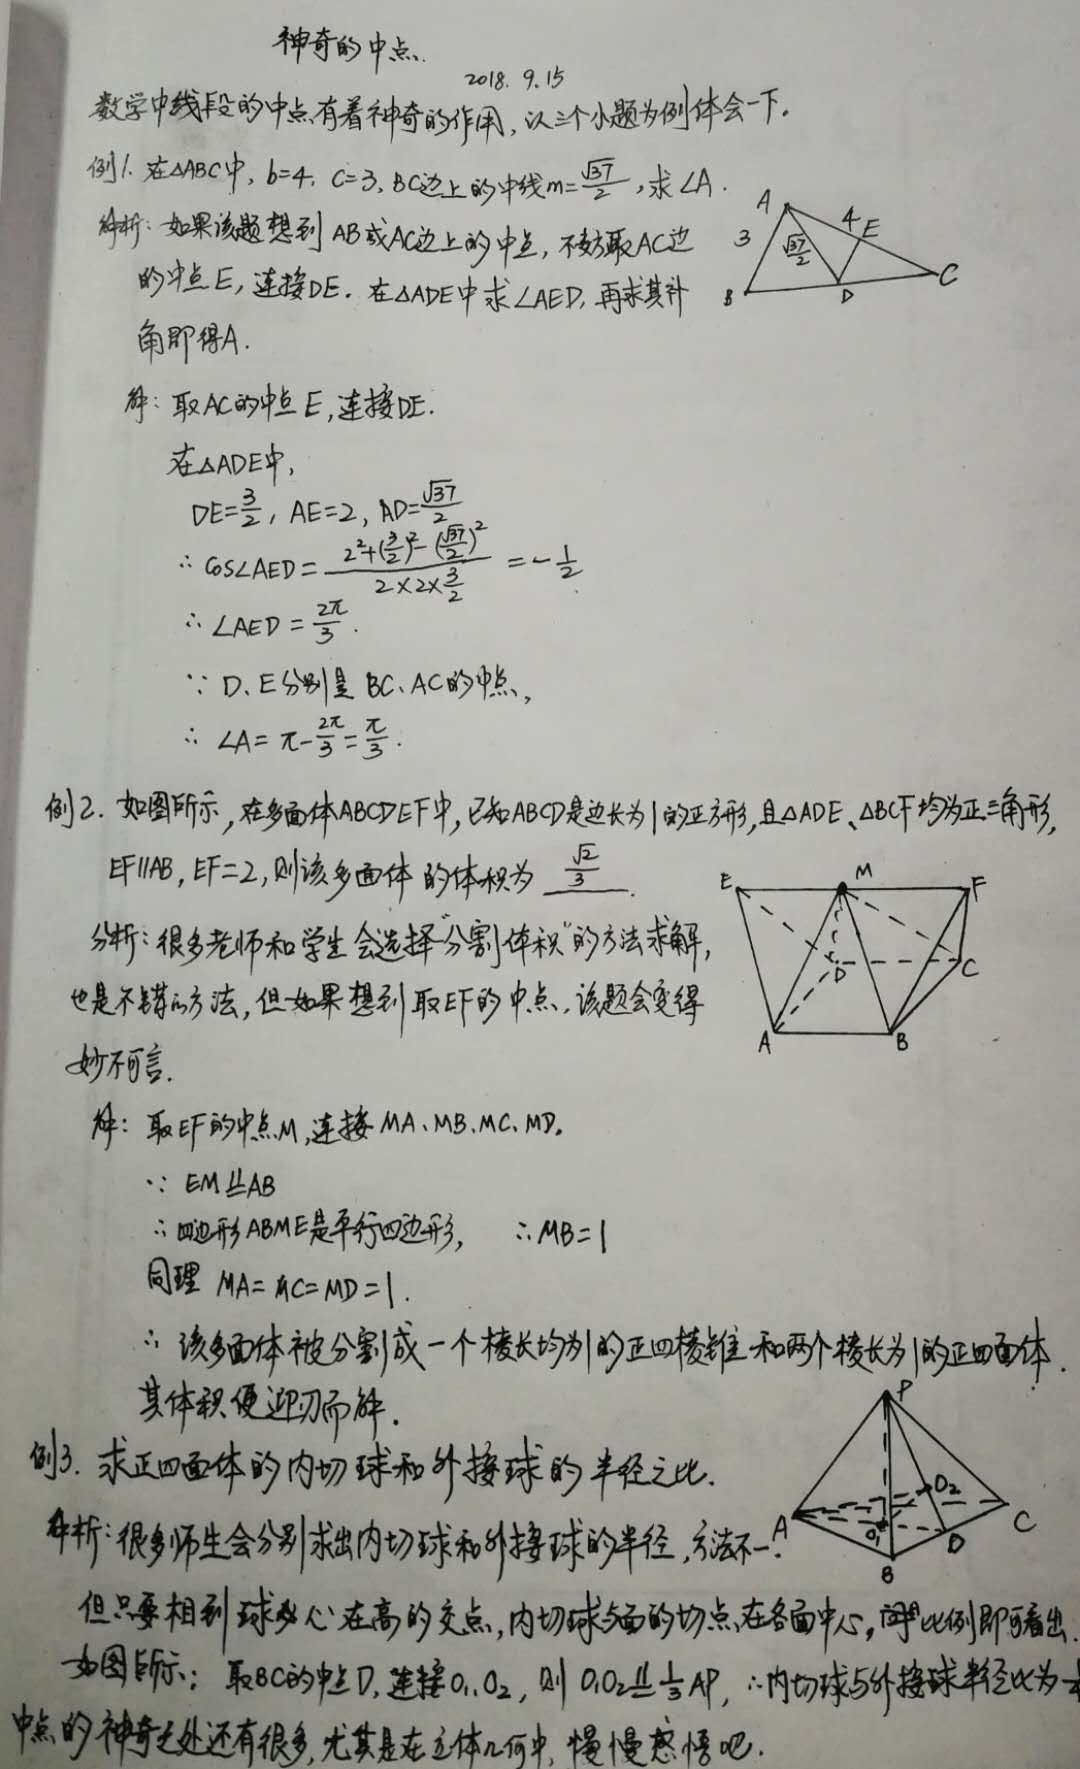 神奇的中点.
2018. 9.15
数学中线段的中点有着神奇的作用,以三个小题为例体会一下。
例1. 在△ABC中, b=4, c=3, BC边上的中线m=√37/2, 求∠A.
解析: 如果该题想到AB或AC边上的中点, 不妨取AC边
的中点E, 连接DE. 在△ADE中求∠AED, 再求其补
角即得A.
A
4
E
3
√37/2
B
D
C
解: 取AC的中点E, 连接DE.
在△ADE中,
DE=3/2, AE=2, AD=√37/2
∴ cos∠AED = (2²+(3/2)²-(√37/2)²)/(2×2×3/2) = -1/2
∴ ∠AED = 2π/3.
∵ D、E分别是BC、AC的中点,
∴ ∠A = π-2π/3=π/3.
例2. 如图所示, 在多面体ABCDEF中, 已知ABCD是边长为1的正方形, 且△ADE、△BCF均为正三角形,
EF∥AB, EF=2, 则该多面体的体积为 √2/3.
分析: 很多老师和学生会选择“分割体积”的方法求解,
也是不错的方法, 但如果想到取EF的中点, 该题会变得
妙不可言.
E
M
F
D
C
A
B
解: 取EF的中点M, 连接MA、MB、MC、MD。
∵ EM⫽AB
∴ 四边形ABME是平行四边形, ∴MB=1
同理 MA=MC=MD=1.
∴ 该多面体被分割成一个棱长均为1的正四棱锥和两个棱长为1的正四面体.
其体积便迎刃而解.
例3. 求正四面体的内切球和外接球的半径之比.
解析: 很多师生会分别求出内切球和外接球的半径, 方法不一.
P
O₂
A
O₁
C
D
B
但只要相到球心在高的交点, 内切球与面的切点在各面中心, 比例即可看出.
如图所示: 取BC的中点D, 连接O₁O₂, 则O₁O₂⫽1/3AP, ∴内切球与外接球半径比为
中点的神奇之处还有很多, 尤其是在立体几何中, 慢慢感悟吧.